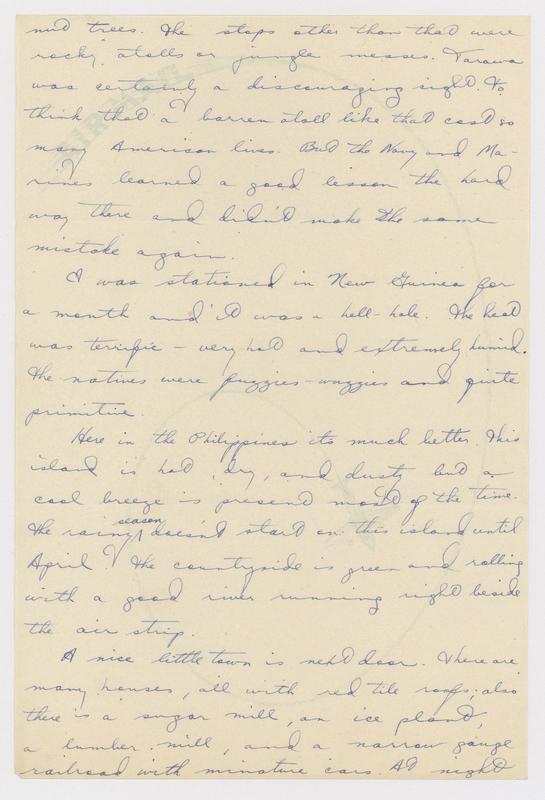 nut trees. The stops other than that were
rocky atolls or jungle messes. Tarawa
was certainly a discouraging sight. To
think that a barren atoll like that cost so
many American lives. But the Navy and Ma-
rines learned a good lesson the hard
way there and didn't make the same
mistake again.
I was stationed in New Guinea for
a month and it was a hell-hole. The heat
was terrific - very hot and extremely humid.
The natives were fuzzies-wuzzies and quite
primitive.
Here in the Philippines its much better. This
island is hot, dry, and dusty but a
cool breeze is present most of the time.
The rainy season doesn't start on this island until
April. The countryside is green and rolling
with a good river running right beside
the air strip.
A nice little town is next door. There are
many houses, all with red tile roofs; also
there is a sugar mill, an ice plant,
a lumber mill, and a narrow gauge
railroad with minature cars. At night